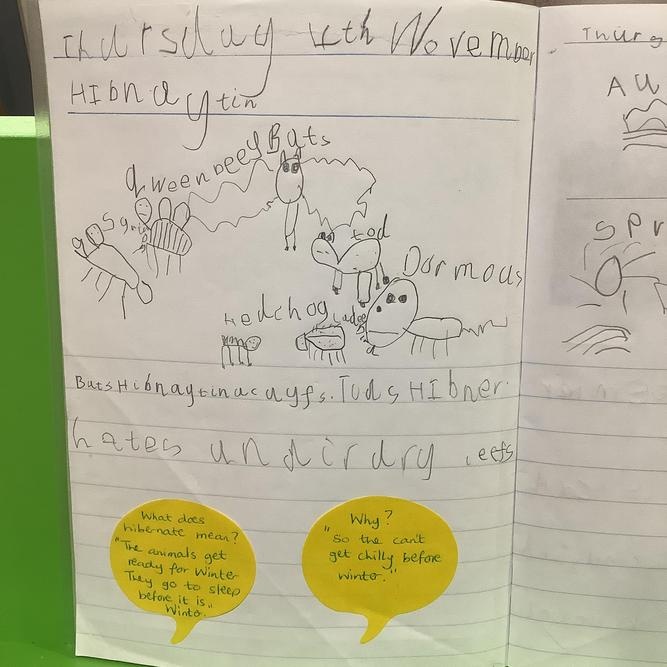 Thursday 4th November
HIbnaytin
qweenbeey Bats
tod
Dormous
Hedchog
Bats HIbnaytin a cayfs. Tods HIbner.
hates undir dry leefs
What does
hibernate mean?
"The animals get
ready for Winter
They go to sleep
before it is
Winto."
Why?
"so the can't
get chilly before
winto."
Thurs
AU
SPr